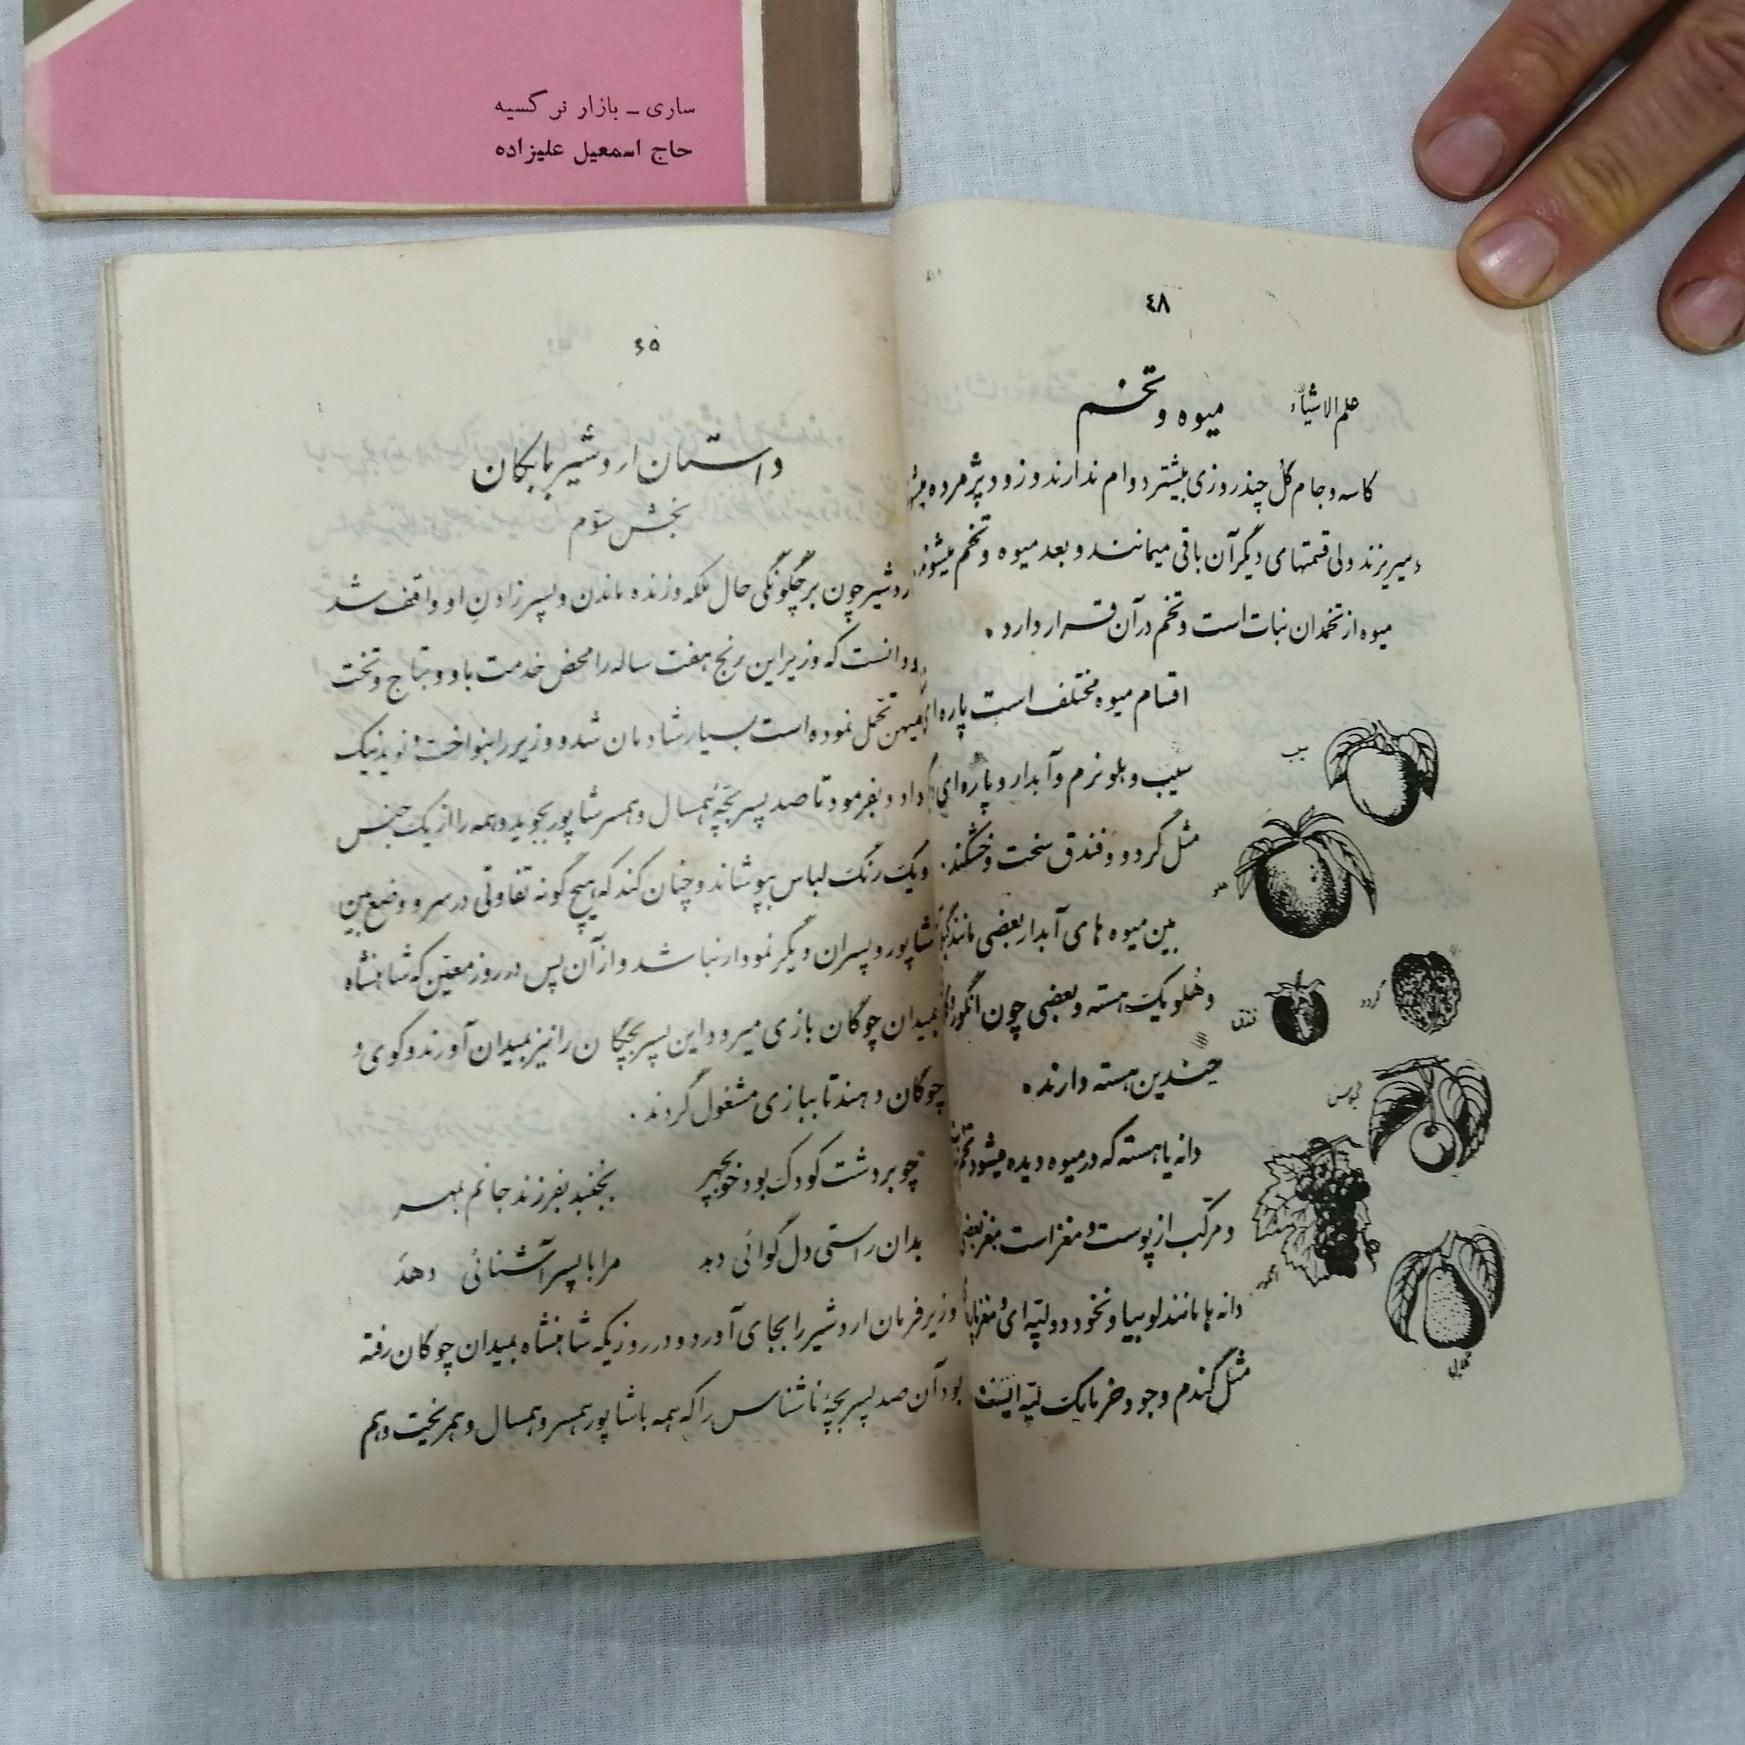 ساری ـ بازار نرگسیه
حاج اسمعیل علیزاده
٤٨
علم الاشیاء
میوه و تخم
کاسه و جام گل چند روزی بیشتر دوام ندارند و زود پژمرده
و میریزند ولی قسمتهای دیگر آن باقی میمانند و بعد میوه و تخم میشوند
میوه از تخمدان نبات است و تخم در آن قرار دارد.
اقسام میوه مختلف است پاره‌ای
سیب و هلو نرم و آبدار و پاره‌ای
مثل گردو و فندق سخت و خشکند.
بین میوه های آبدار بعضی مانند
و هلو یک هسته و بعضی چون انگور
چندین هسته دارند.
دانه یا هسته که در میوه دیده میشود تخم
و مرکب از پوست و مغز است مغز بعضی
دانه ها مانند لوبیا و نخود دولپه‌ای و مغز
مثل گندم و جو و خرما یک لپه ایست
سیب
هلو
گردو
فندق
انگور
گلابی
داستان اردشیر بابکان
بخش سوم
اردشیر چون بر چگونگی حال ملکه و زنده ماندن و پسر زادن او واقف شد
و دانست که وزیر این رنج هفت ساله را محض خدمت باو و بتاج و تخت
میهن تحمل نموده است بسیار شادمان شد و وزیر را بنواخت و نوید نیک
داد و بفرمود تا صد پسر بچه همسال و همسر شاپور بجوید و همه را از یک جنس
و یک رنگ لباس بپوشاند و چنان کند که هیچ گونه تفاوتی در سر و وضع بین
شاپور و پسران دیگر نمودار نباشد و از آن پس در روز معین که شاهنشاه
بمیدان چوگان بازی میرود این پسر بچگان را نیز بمیدان آورند و گوی و
چوگان دهند تا ببازی مشغول گردند.
چو بر دشت کودک بود خوبچهر
بجنبد بفرزند جانم بمهر
بدان راستی دل گوائی دهد
مرا با پسر آشنائی دهد
وزیر فرمان اردشیر را بجای آورد و در روزیکه شاهنشاه بمیدان چوگان رفته
بود آن صد پسر بچه ناشناس را که همه با شاپور همسر و همسال و همریخت و هم